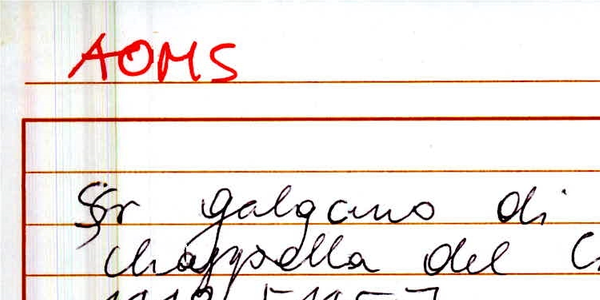 AOMS
Sr galgano di
chappella del